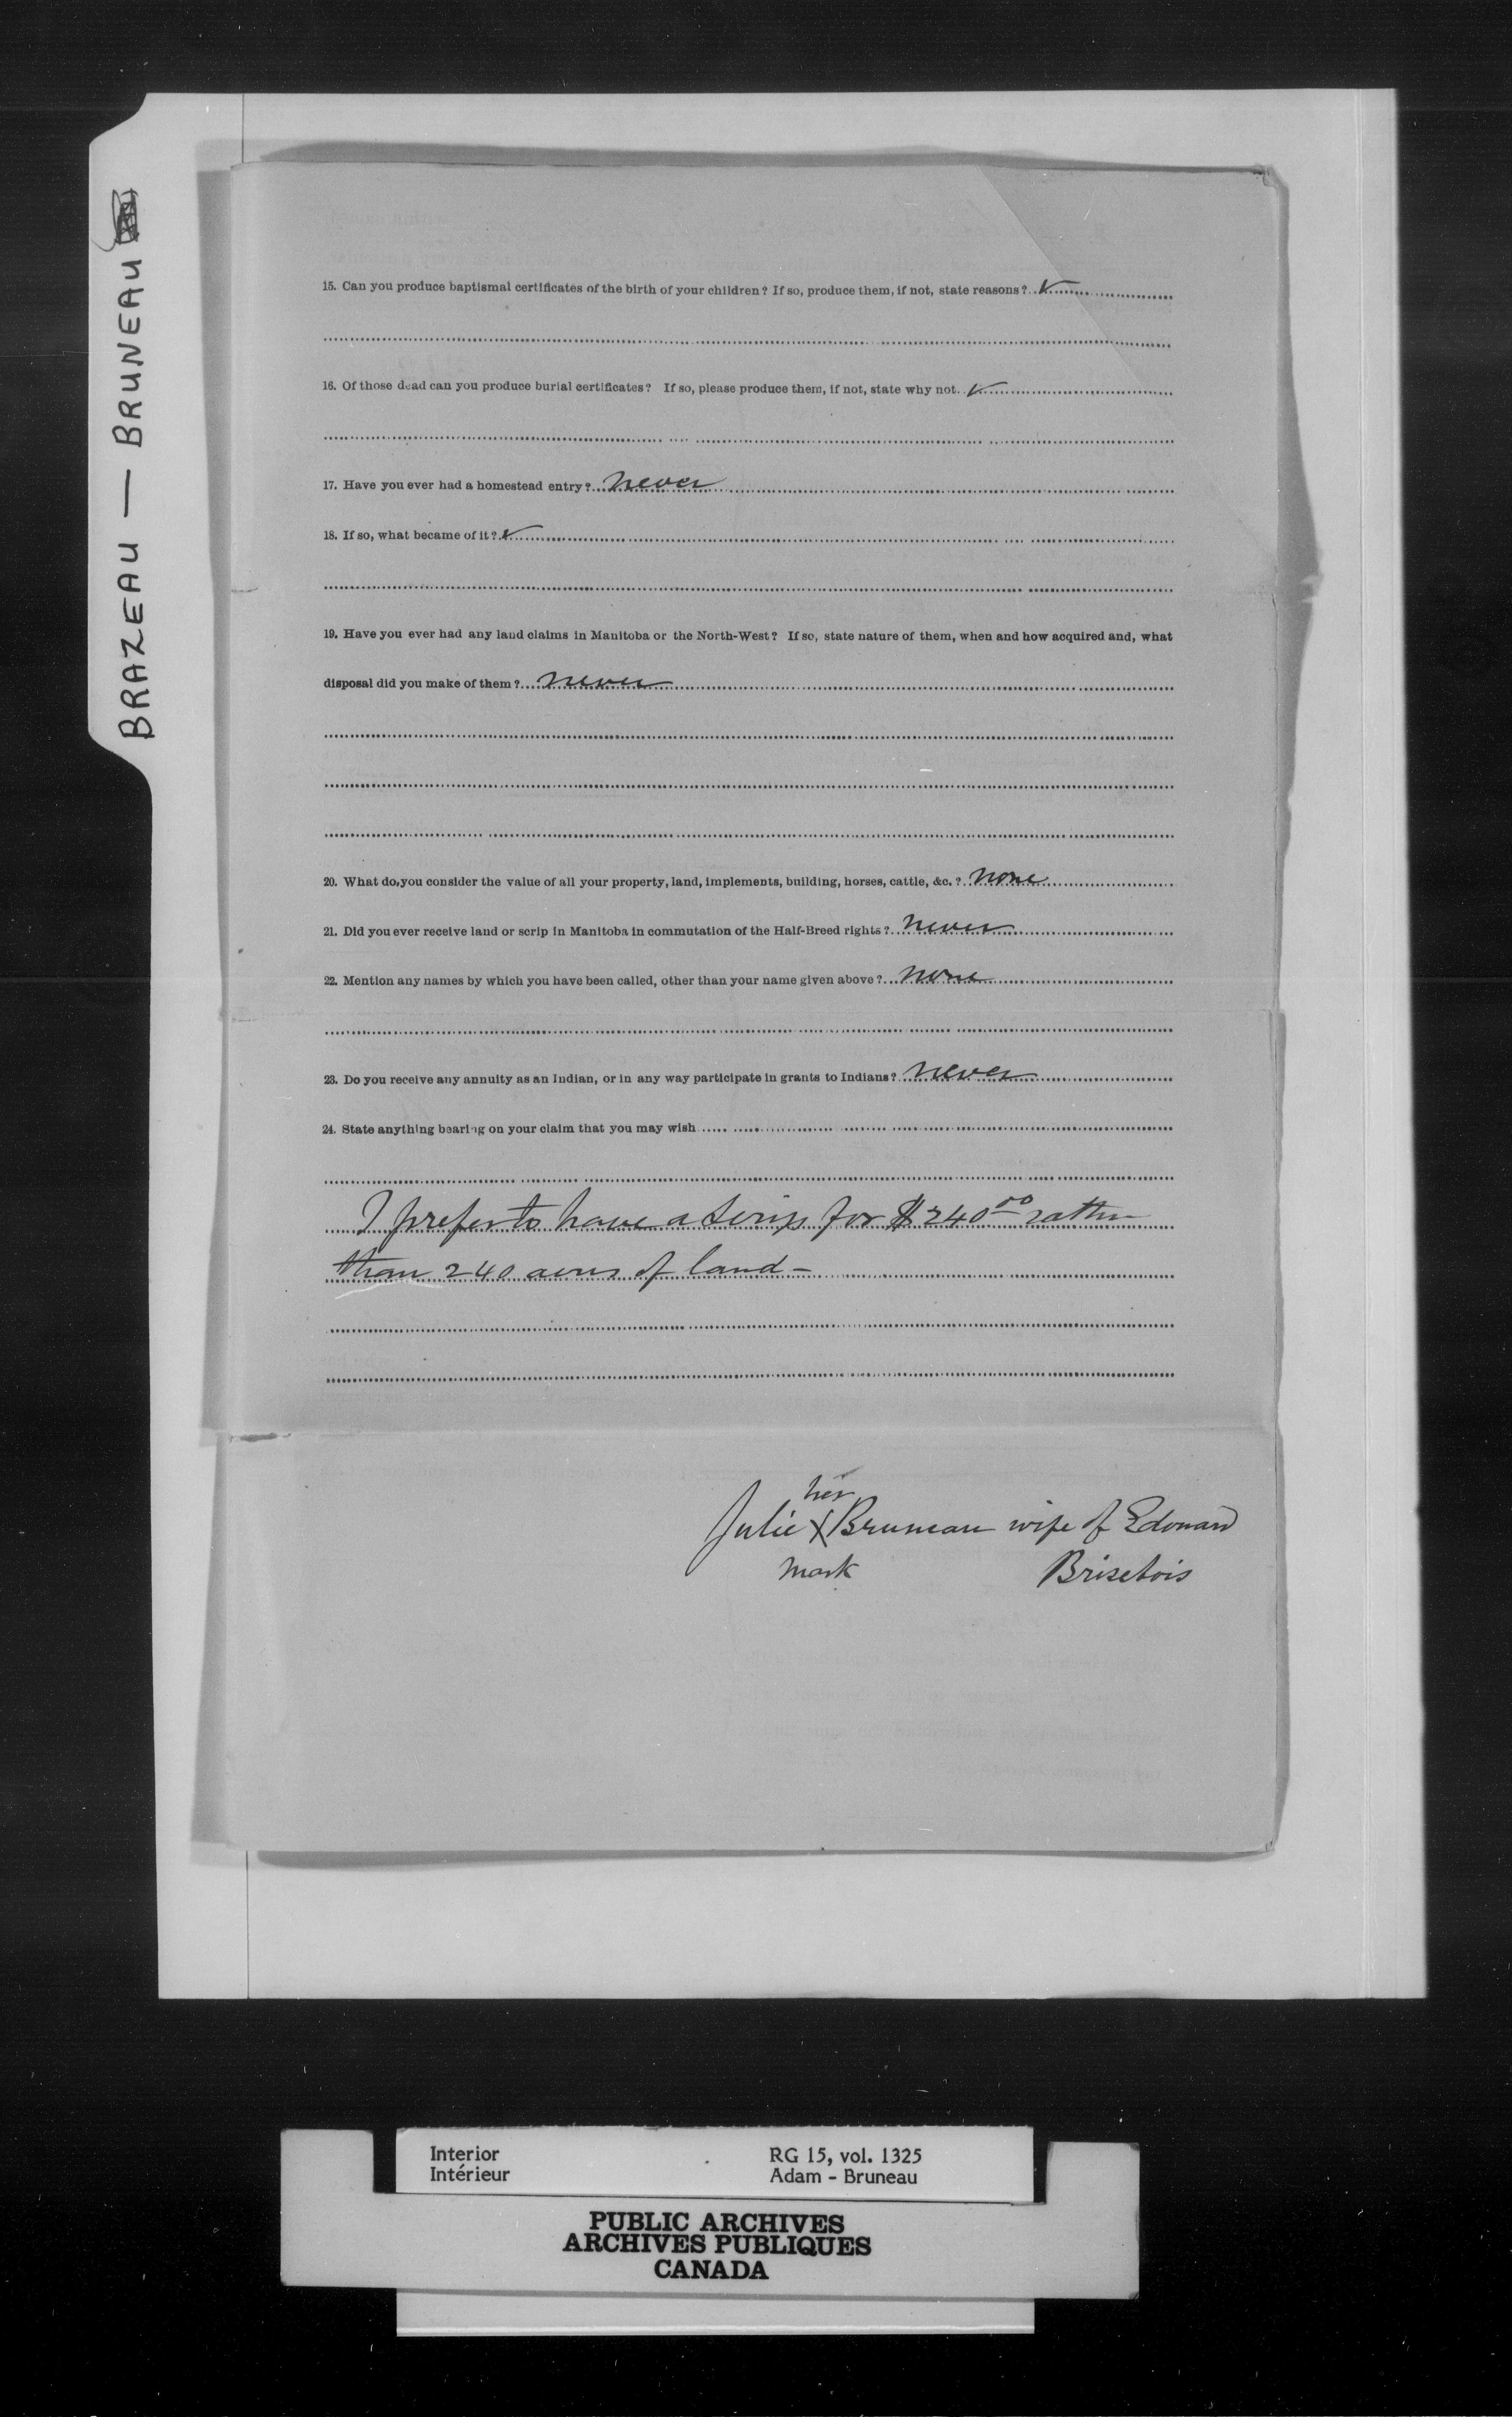 BRAZEAU — BRUNEAU
15. Can you produce baptismal certificates of the birth of your children? If so, produce them, if not, state reasons? ✓
16. Of those dead can you produce burial certificates? If so, please produce them, if not, state why not. ✓
17. Have you ever had a homestead entry? never
18. If so, what became of it? ✓
19. Have you ever had any land claims in Manitoba or the North-West? If so, state nature of them, when and how acquired and, what
disposal did you make of them? never
20. What do you consider the value of all your property, land, implements, building, horses, cattle, &c.? none
21. Did you ever receive land or scrip in Manitoba in commutation of the Half-Breed rights? never
22. Mention any names by which you have been called, other than your name given above? none
23. Do you receive any annuity as an Indian, or in any way participate in grants to Indians? never
24. State anything bearing on your claim that you may wish
I prefer to have a Scrip for $240.00 rather
than 240 acres of land -
her
Julie X Bruneau wife of Edouard
mark Brisebois
Interior RG 15, vol. 1325
Intérieur Adam - Bruneau
PUBLIC ARCHIVES
ARCHIVES PUBLIQUES
CANADA